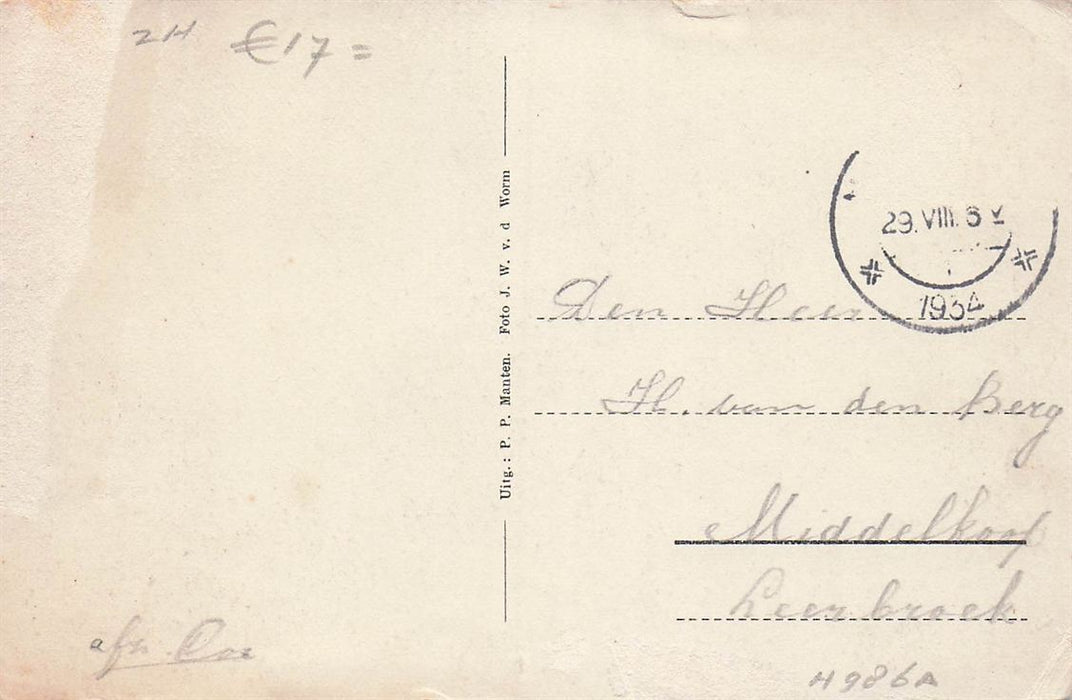 2H €17=
Uitg.: P. P. Manten. Foto J. W. v. d Worm
29.VIII.6 V
1934
Den Heer
H. van den Berg
Middelkoop
Leerbroek
afz.
H986A